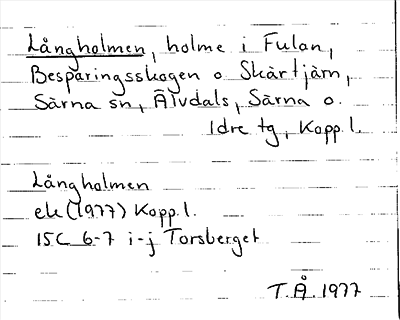 Långholmen, holme i Fulan,
Besparingsskogen o. Skärtjärn,
Särna sn, Älvdals, Särna o.
Idre tg, Kopp.l.
Långholmen
ek (1977) Kopp.l.
15C 6-7 i-j Torsberget
T.Å 1977